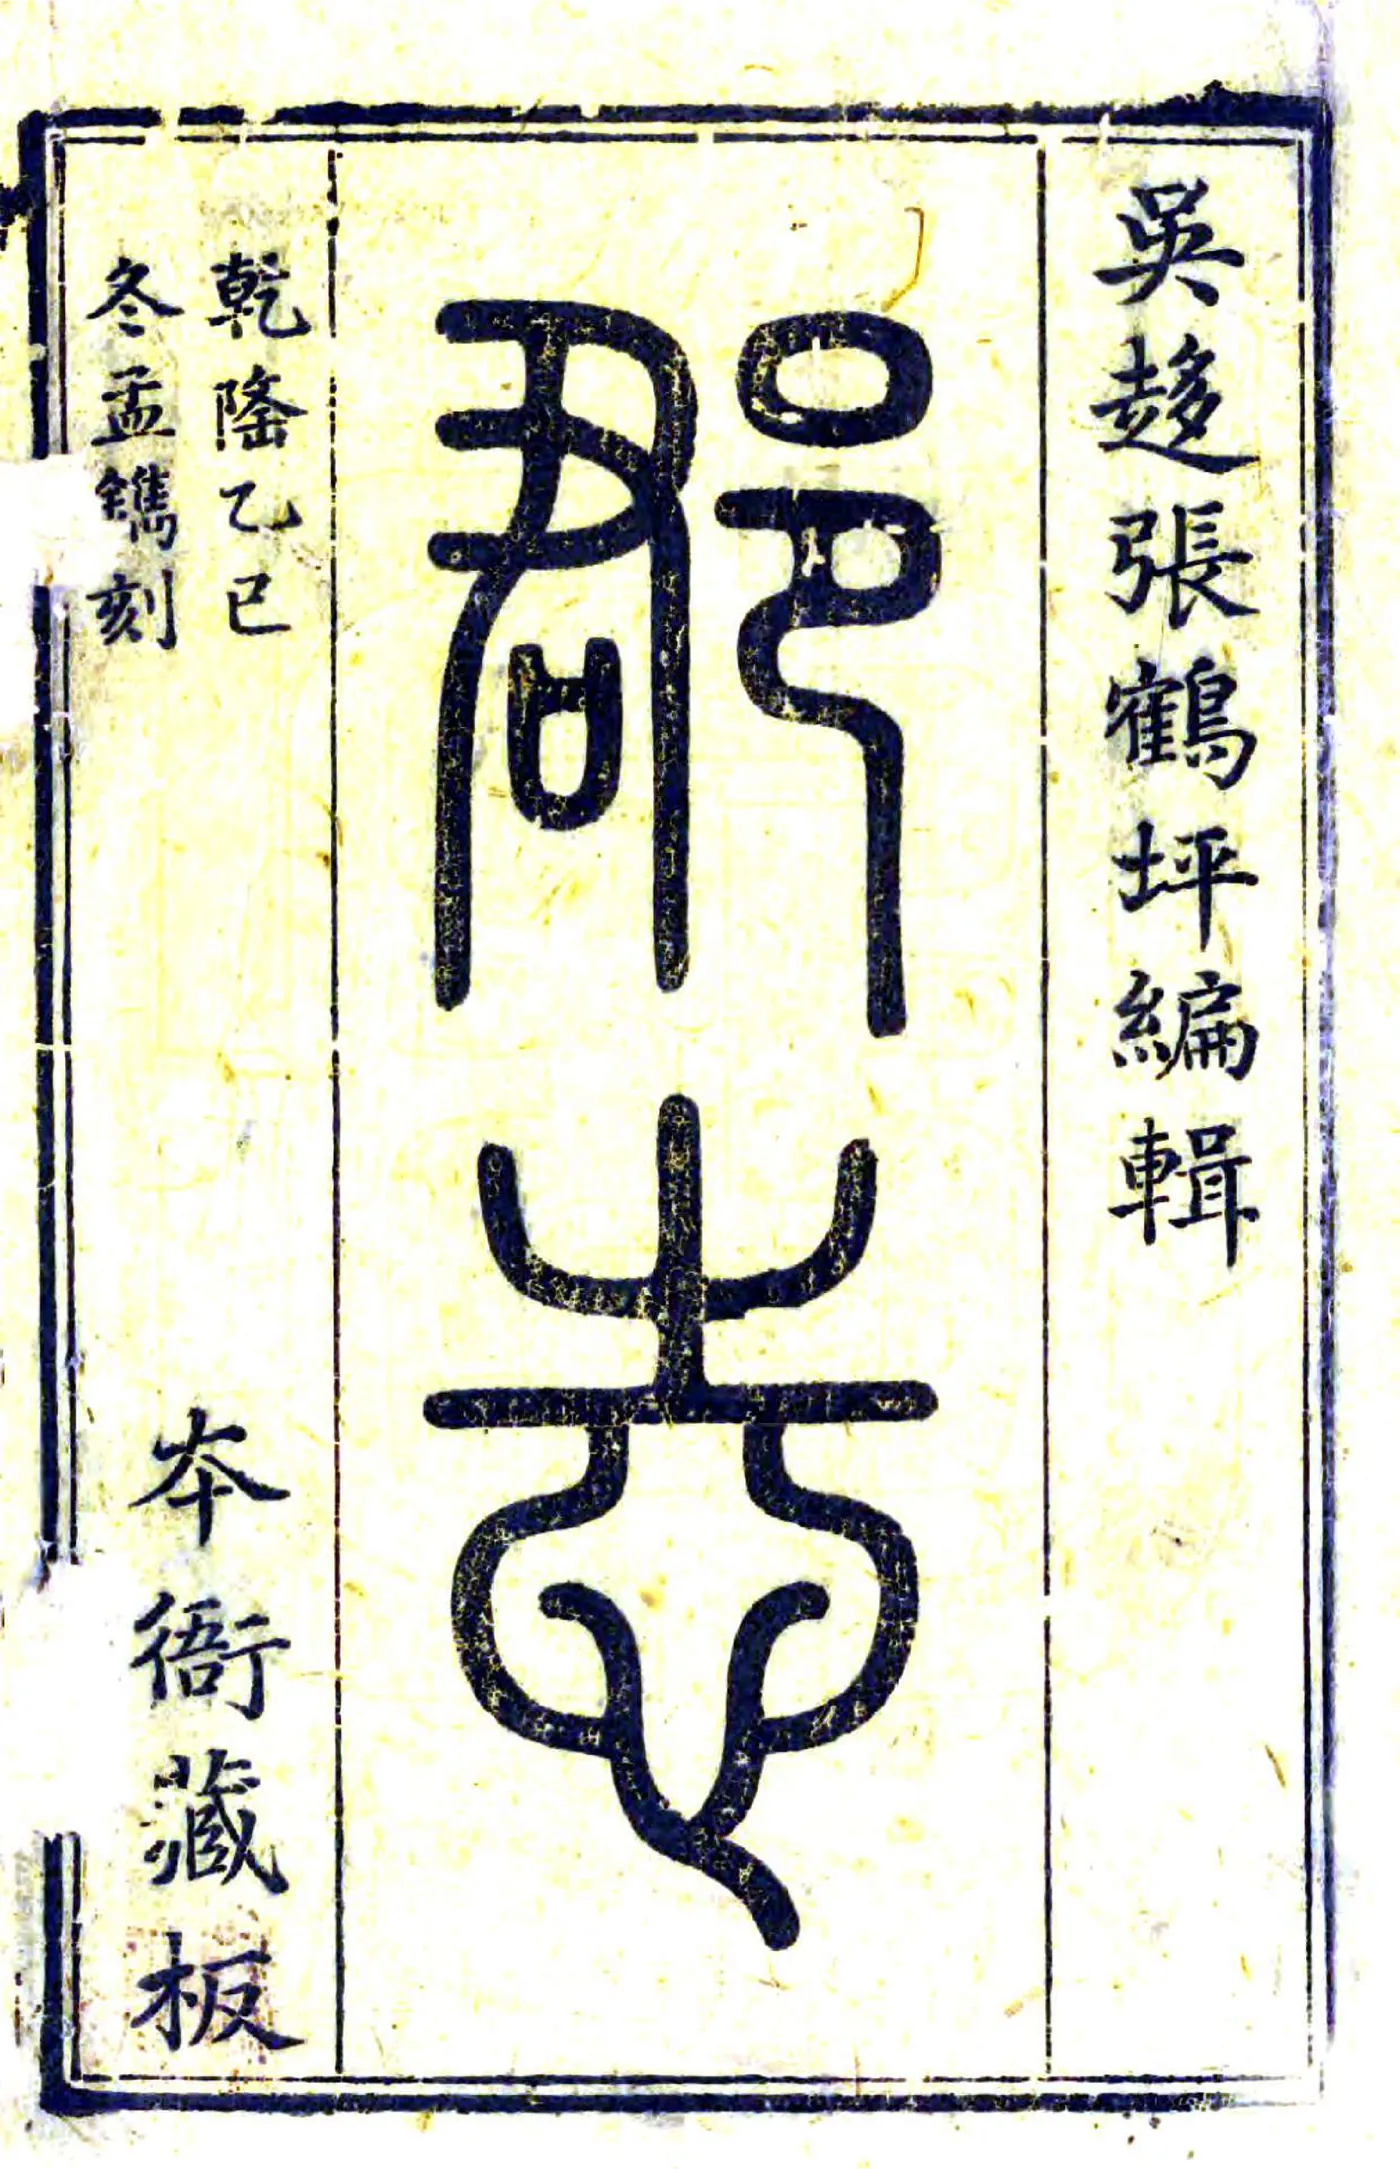 吳趍張鶴坪編輯
郡志
乾隆乙巳
冬孟鐫刻
夲衙藏板